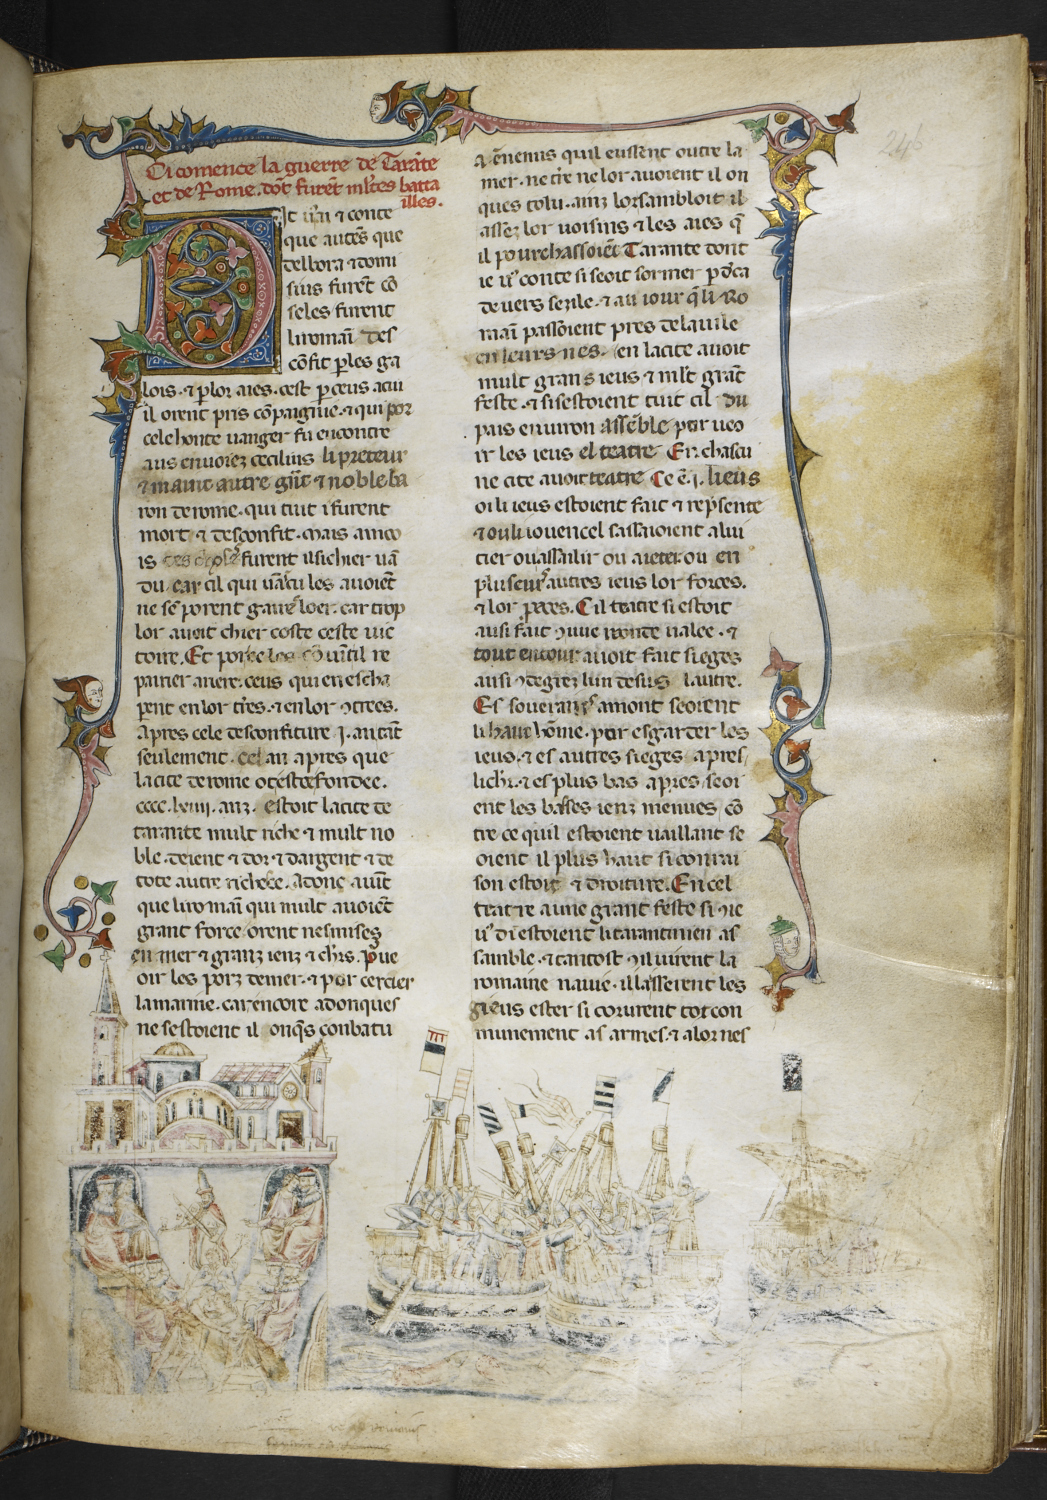 Ci comence la guerre de Tarãte
et de Rome. dõt furẽt ml'tes batta
illes.
que autẽs que
furẽt cõ
seles furent
li romaĩ des
cõfit ꝑles ga
lois. ⁊ ꝑlor aies. cest ꝑ ceus a cui
il orent pris cõpaignie. ⁊ qui por
cele honte uanger fu encontre
aus enuoiez cecilius li preteur
⁊ maint autre gñt ⁊ noble ba
ron de rome. qui tuit i furent
mort ⁊ desconfit. Mais ainco
is furent il si chier uẽ
du. car cil qui les auoiẽt
ne sẽ porent gaires loer. car trop
lor auoit chier coste ceste uic
toire. Et
pairier ariere. ceus qui en escha
ꝑent en lor tr̃es. ⁊ en lor ꝯtrees.
Apres cele desconfiture .j. an tãt
seulement. cel an apres que
la cite de rome ot este fondee.
cccc. lxiiij. anz. estoit la cite de
tarante mult riche ⁊ mult no
ble. deient ⁊ dor ⁊ dargent ⁊ de
tote autre richece. Adonc auĩt
que li romaĩ qui mult auoiẽt
grant force orent nes mises
en mer ⁊ granz ienz ⁊ ch'rs. Pue
oir les porz de mer. ⁊ por cercier
la marine. car encore adonques
ne sestoient il onq̃s conbatu
a ẽnemis quil eussẽnt outre la
mer. ne tr̃e ne lor auoient il on
ques tolu. ainz lor sambloit il
assez lor uoisins ⁊ les aies q̃
il pourchassoiẽt Tarante dont
ie u' conte si seoit sor mer ꝑ deca
deuers sezile. ⁊ au iour q̃ li Ro
maĩ passoient pres de la uile
en leurs nes. en la cite auoit
mult grans ieus ⁊ ml't grãt
feste. ⁊ si sestoient tuit cil du
pais enuiron assẽble por ueo
ir les ieus el teatre En chascu
ne cite auoit teatre Ce ẽ .j. lieus
ou li ieus estoient fait ⁊ rep̃sente
⁊ ou li iouencel sassaioient a lui
tier ou assaillir ou a ieter. ou en
pluseurs autres ieus lor forces.
⁊ lor proes. Cil teatre si estoit
ausi fait ꝯme ronde ualee. ⁊
tout entour auoit fait sieges
ausi ꝯ degrez lun desus lautre.
Es souerains amont seoient
li haut hõme. por esgarder les
ieus. ⁊ es autres sieges apres
li ch'r. ⁊ es plus bas apres seoi
ent les basses ienz menues. cõ
tre ce quil estoient uaillant se
oient il plus haut si con rai
son estoit ⁊ droiture. En cel
teatre a une grant feste si ꝯe
u' di estoient li tarantinien as
samble. ⁊ tantost ꝯ il uirent la
romaine nauie. il lasserent les
gieus ester si corurent tot con
munement as armes. ⁊ a lor nes